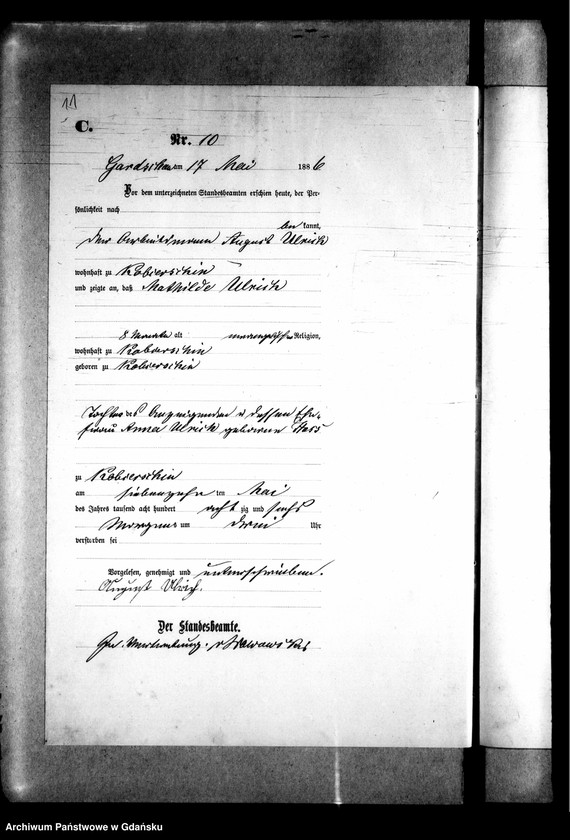 11
C.
Nr. 10
am 17 Mai 1886
Vor dem unterzeichneten Standesbeamten erschien heute, der Per-
sönlichkeit nach
be kannt,
der Arbeitsmann August Ulrich
wohnhaft zu Kobierschin
und zeigte an, daß Mathilde Ulrich
8 Monate alt evangelischer Religion,
wohnhaft zu Kobierschin
geboren zu Kobierschin
Tochter des Anzeigenden u dessen Ehe-
frau Anna Ulrich geborene
zu Kobierschin
am siebenzehn ten Mai
des Jahres tausend acht hundert acht zig und sechs
Morgens um drei Uhr
verstorben sei
Vorgelesen, genehmigt und unterschrieben.
August Ulrich.
Der Standesbeamte.
In Vertretung.
Archiwum Państwowe w Gdańsku